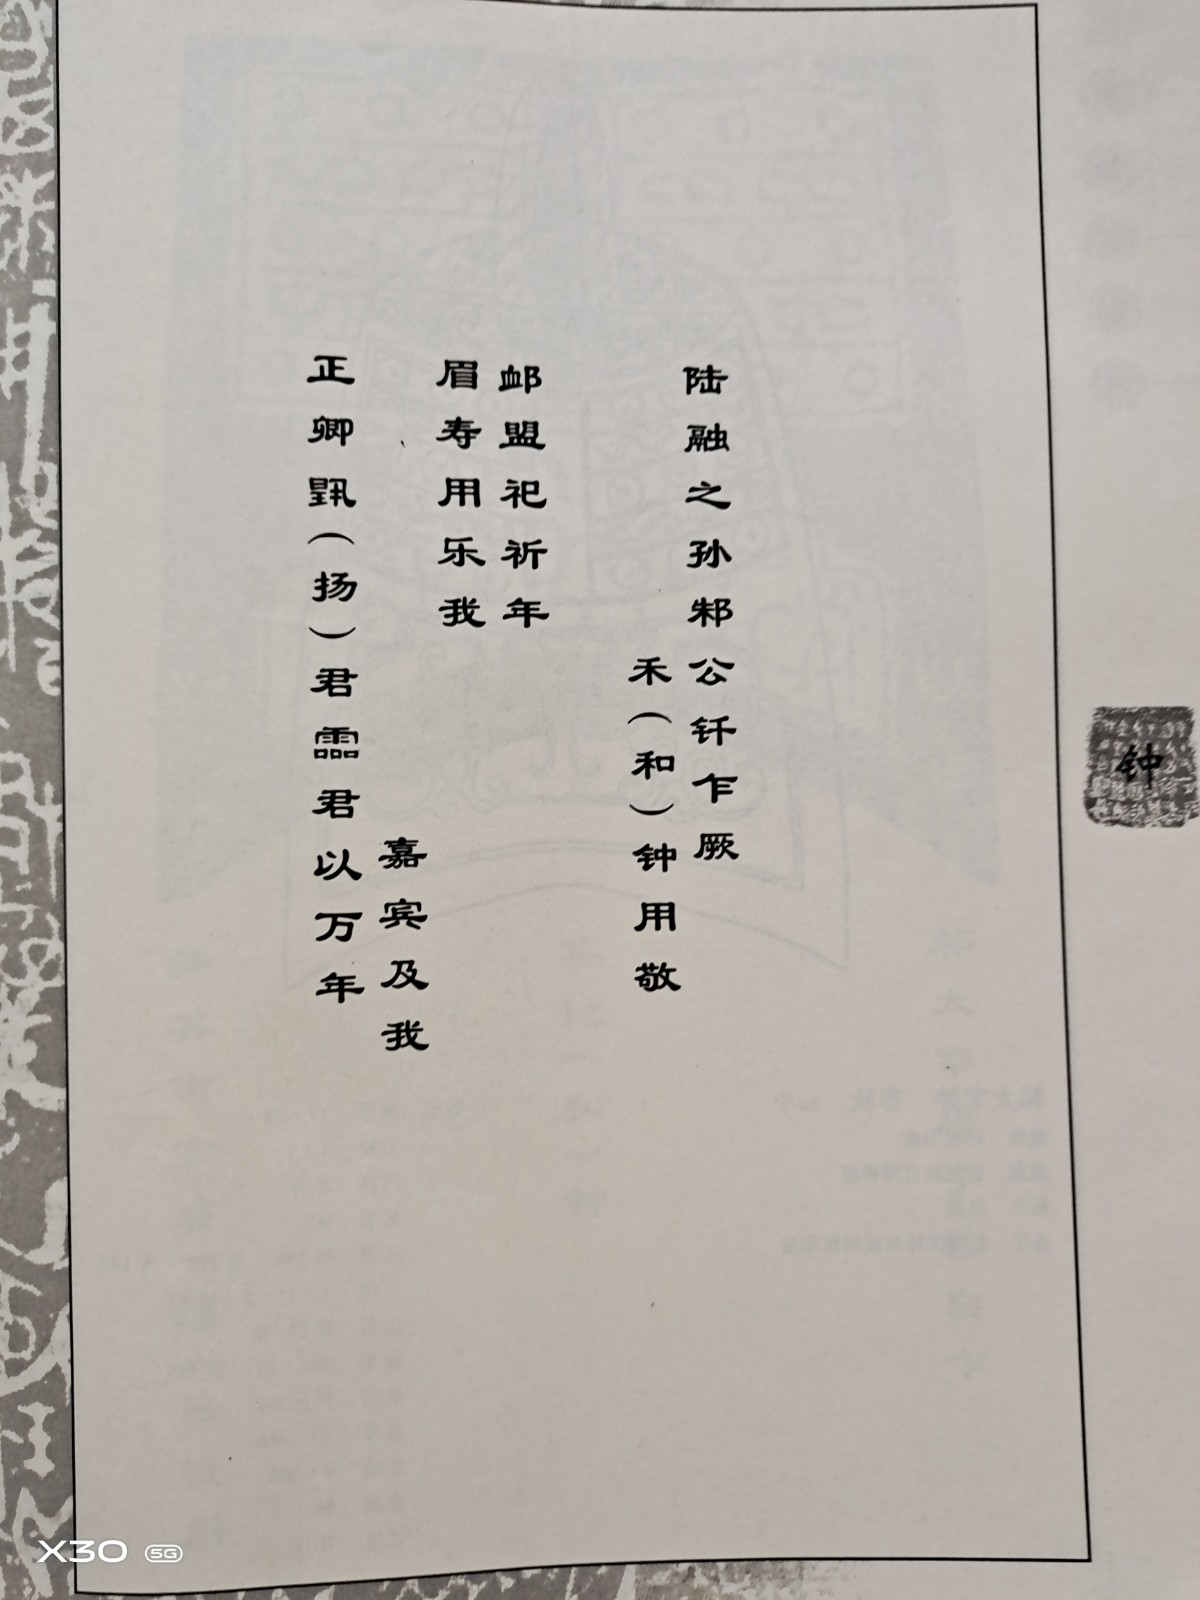 陆融之孙邾公釺乍厥
禾（和）钟用敬
卹盟祀祈年
眉寿用乐我
嘉宾及我
正卿（扬）君霝君以万年
钟
X30 5G